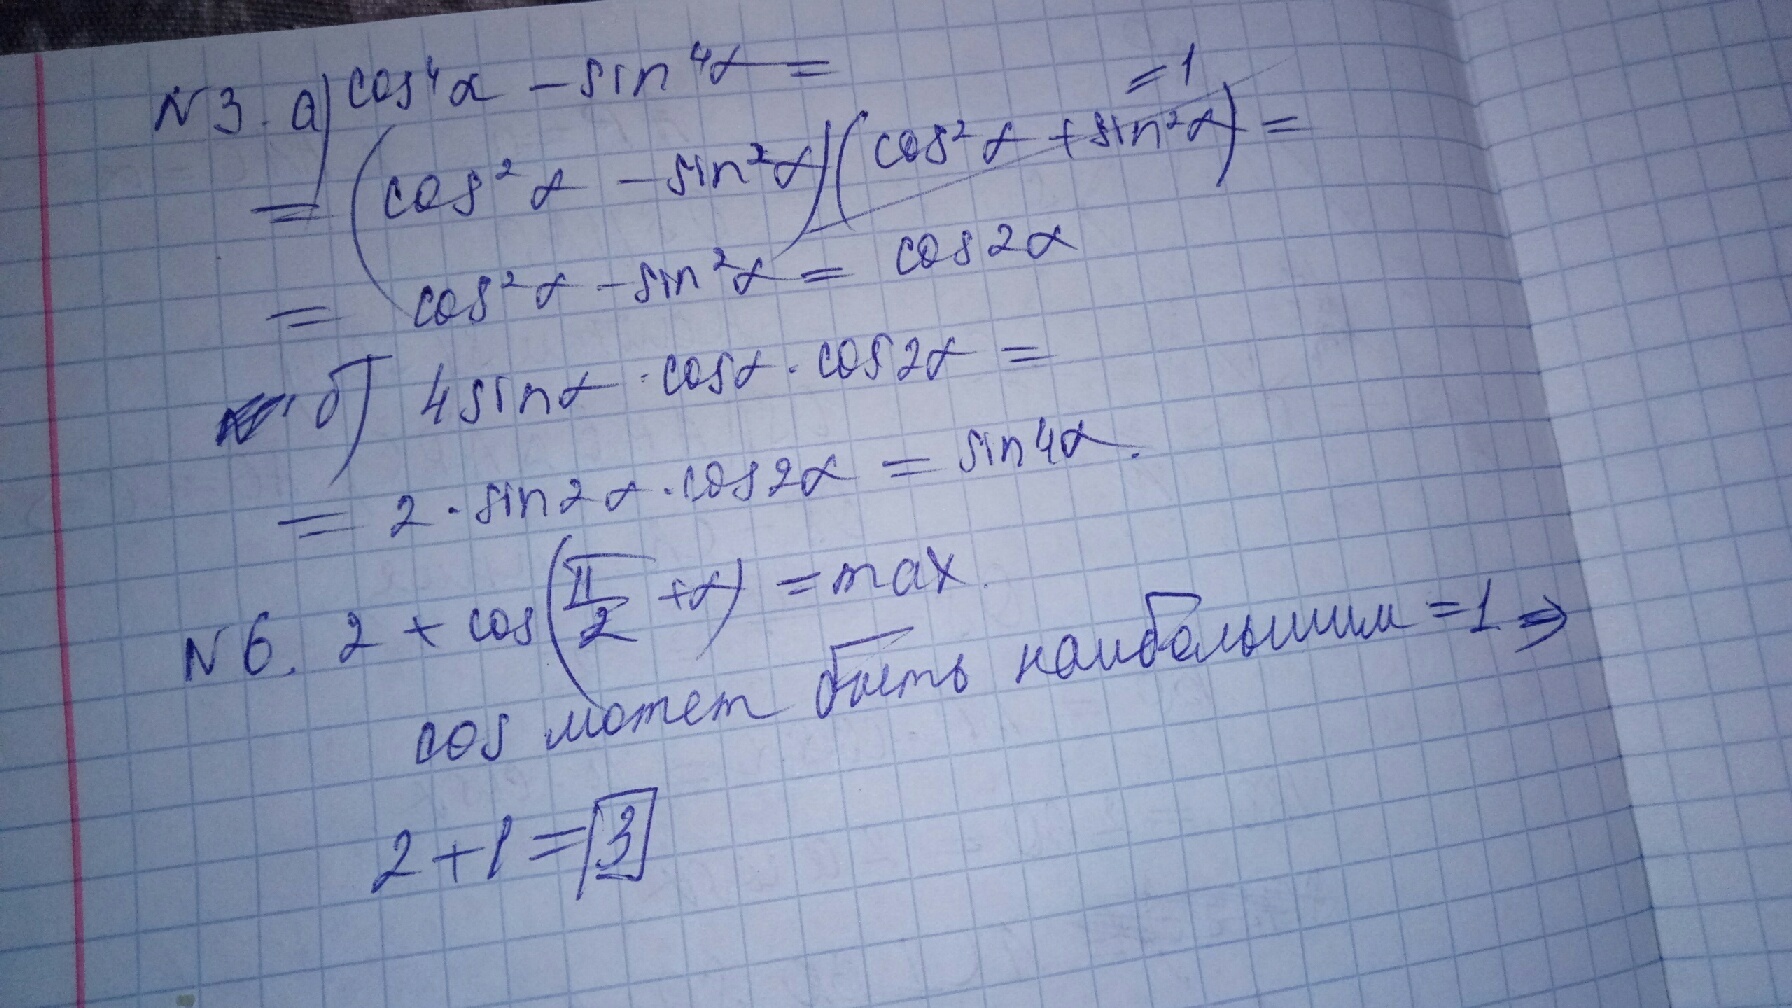 N3. а) cos⁴α - sin⁴α =
= (cos²α - sin²α)(cos²α + sin²α) = =1
= cos²α - sin²α = cos2α
б) 4sinα · cosα · cos2α =
= 2 · sin2α · cos2α = sin4α.
N6. 2 + cos(π/2 + α) = max.
cos может быть наибольшим = 1 ⇒
2 + 1 = 3